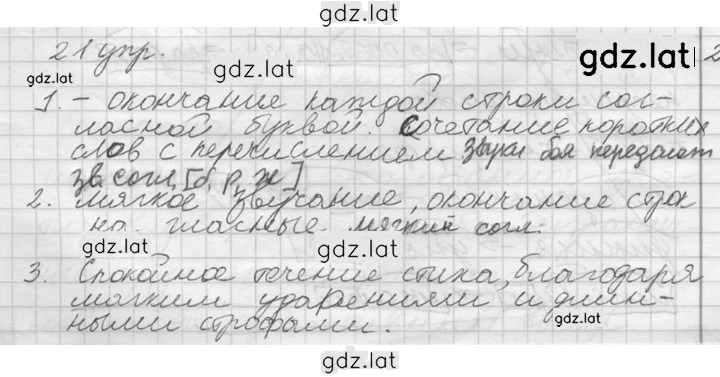 gdz.lat
21 упр.
gdz.lat
gdz.lat
gdz.lat
2
1. – окончание каждой строки сог-
ласной буквой. Сочетание коротких
слов с перечислением звуки боя передают
зв. согл. [б, р, ж]
2. мягкое звучание, окончание строк
на гласные мягкий согл.
gdz.lat
gdz.lat
3. Спокойное течение стиха, благодаря
мягким ударениями и длин-
ными строфами.
gdz.lat
gdz.lat